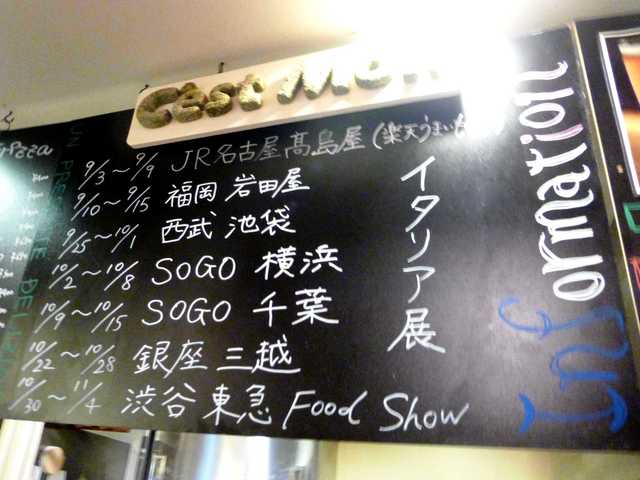 C'est
JR名古屋髙島屋(楽天うまいも
9/3~9/9
福岡 岩田屋
9/10~9/15
西武 池袋
9/25~10/1
SOGO 横浜
10/2~10/8
SOGO 千葉
10/9~10/15
銀座 三越
10/22~10/28
渋谷東急 Food Show
10/30~11/4
イタリア展
Information